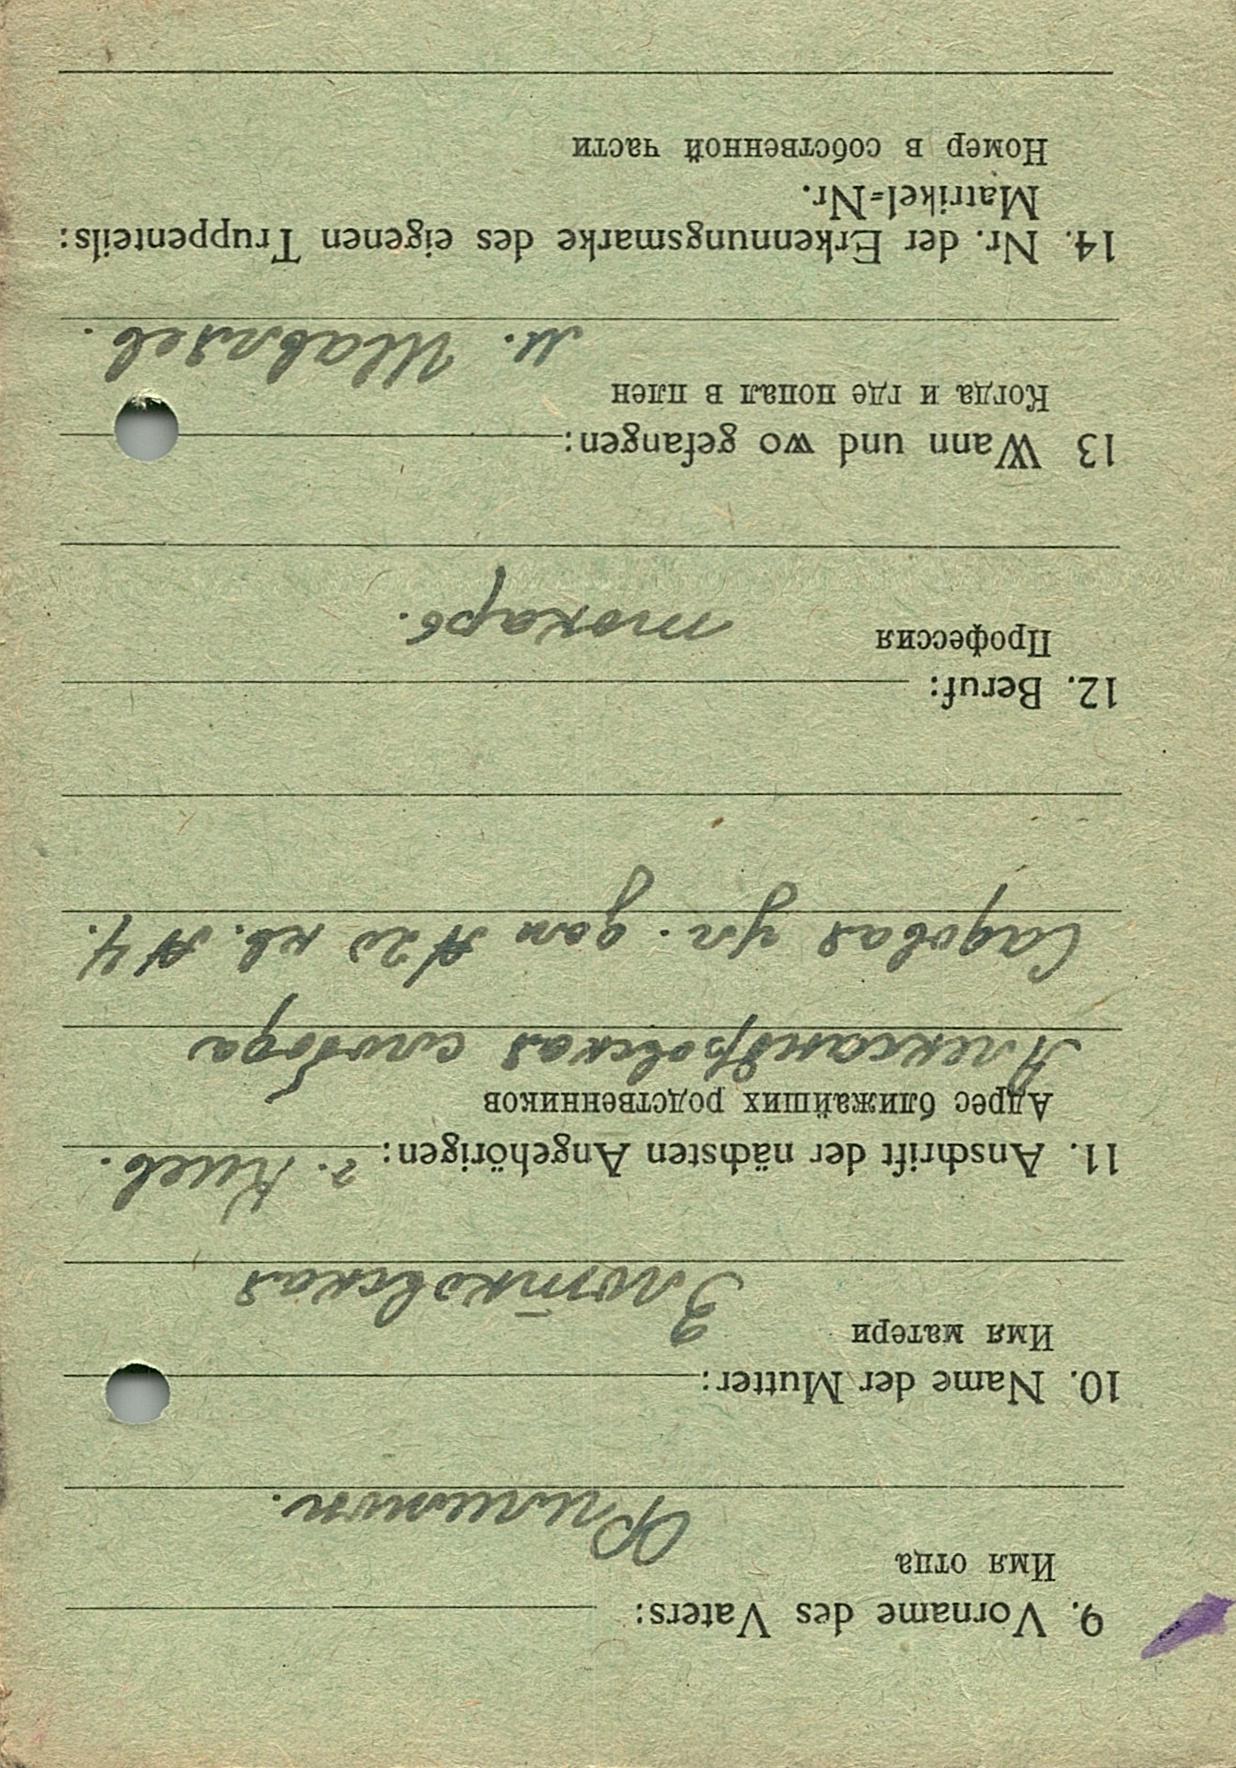 9. Vorname des Vaters:
Имя отца
Филимон.
10. Name der Mutter:
Имя матери
Злотковская
11. Anschrift der nächsten Angehörigen: г. Киев.
Адрес ближайших родственников
Александровская слобода
Садовая ул. дом № 20 кв. № 4.
12. Beruf:
Профессия
токарь.
13 Wann und wo gefangen:
Когда и где попал в плен
м.
14. Nr. der Erkennungsmarke des eigenen Truppenteils:
Matrikel=Nr.
Номер в собственной части